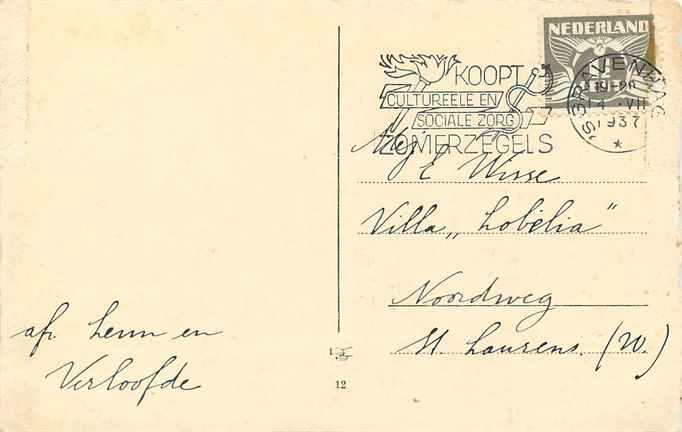 NEDERLAND
KOOPT
CULTUREELE EN
SOCIALE ZORG
ZOMERZEGELS
'S GRAVENHAGE
VII
1937
*
Mej E Wisse
Villa „Lobélia"
Noordweg
St. Laurens. (W.)
afz. henn en
Verloofde
12